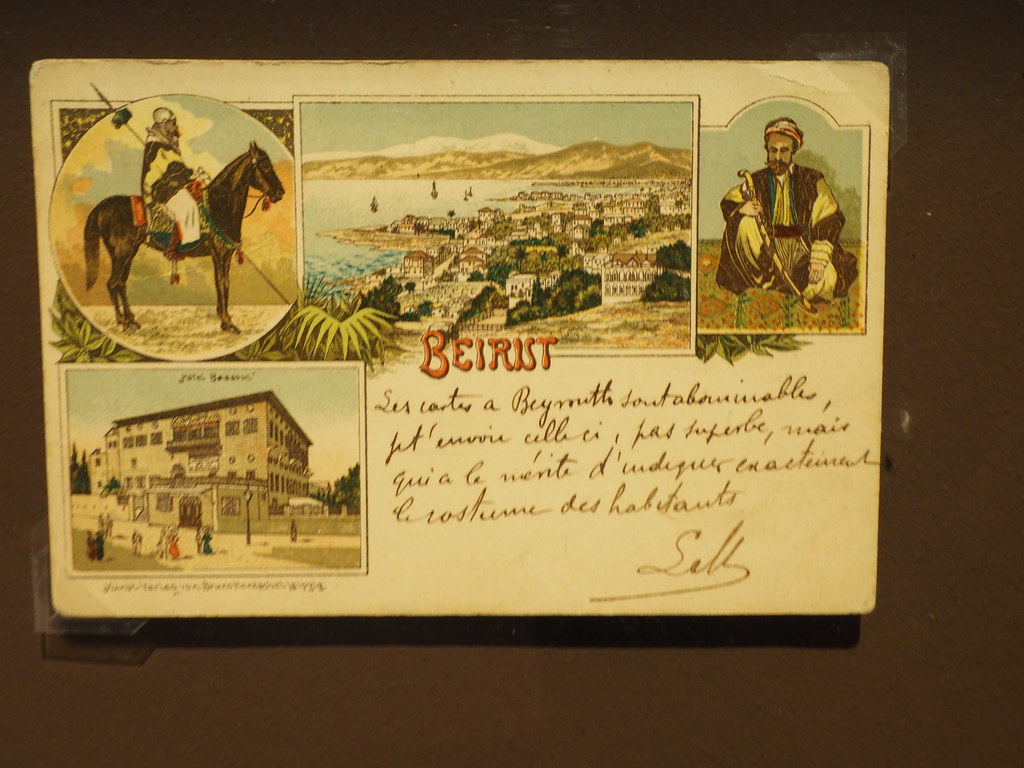 Hotel Bassoul
BEIRUT
Les cartes a Beyrouth sont abominables,
je t'envoie celle ci, pas superbe, mais
qui a le mérite d'indiquer exactement
le costume des habitants